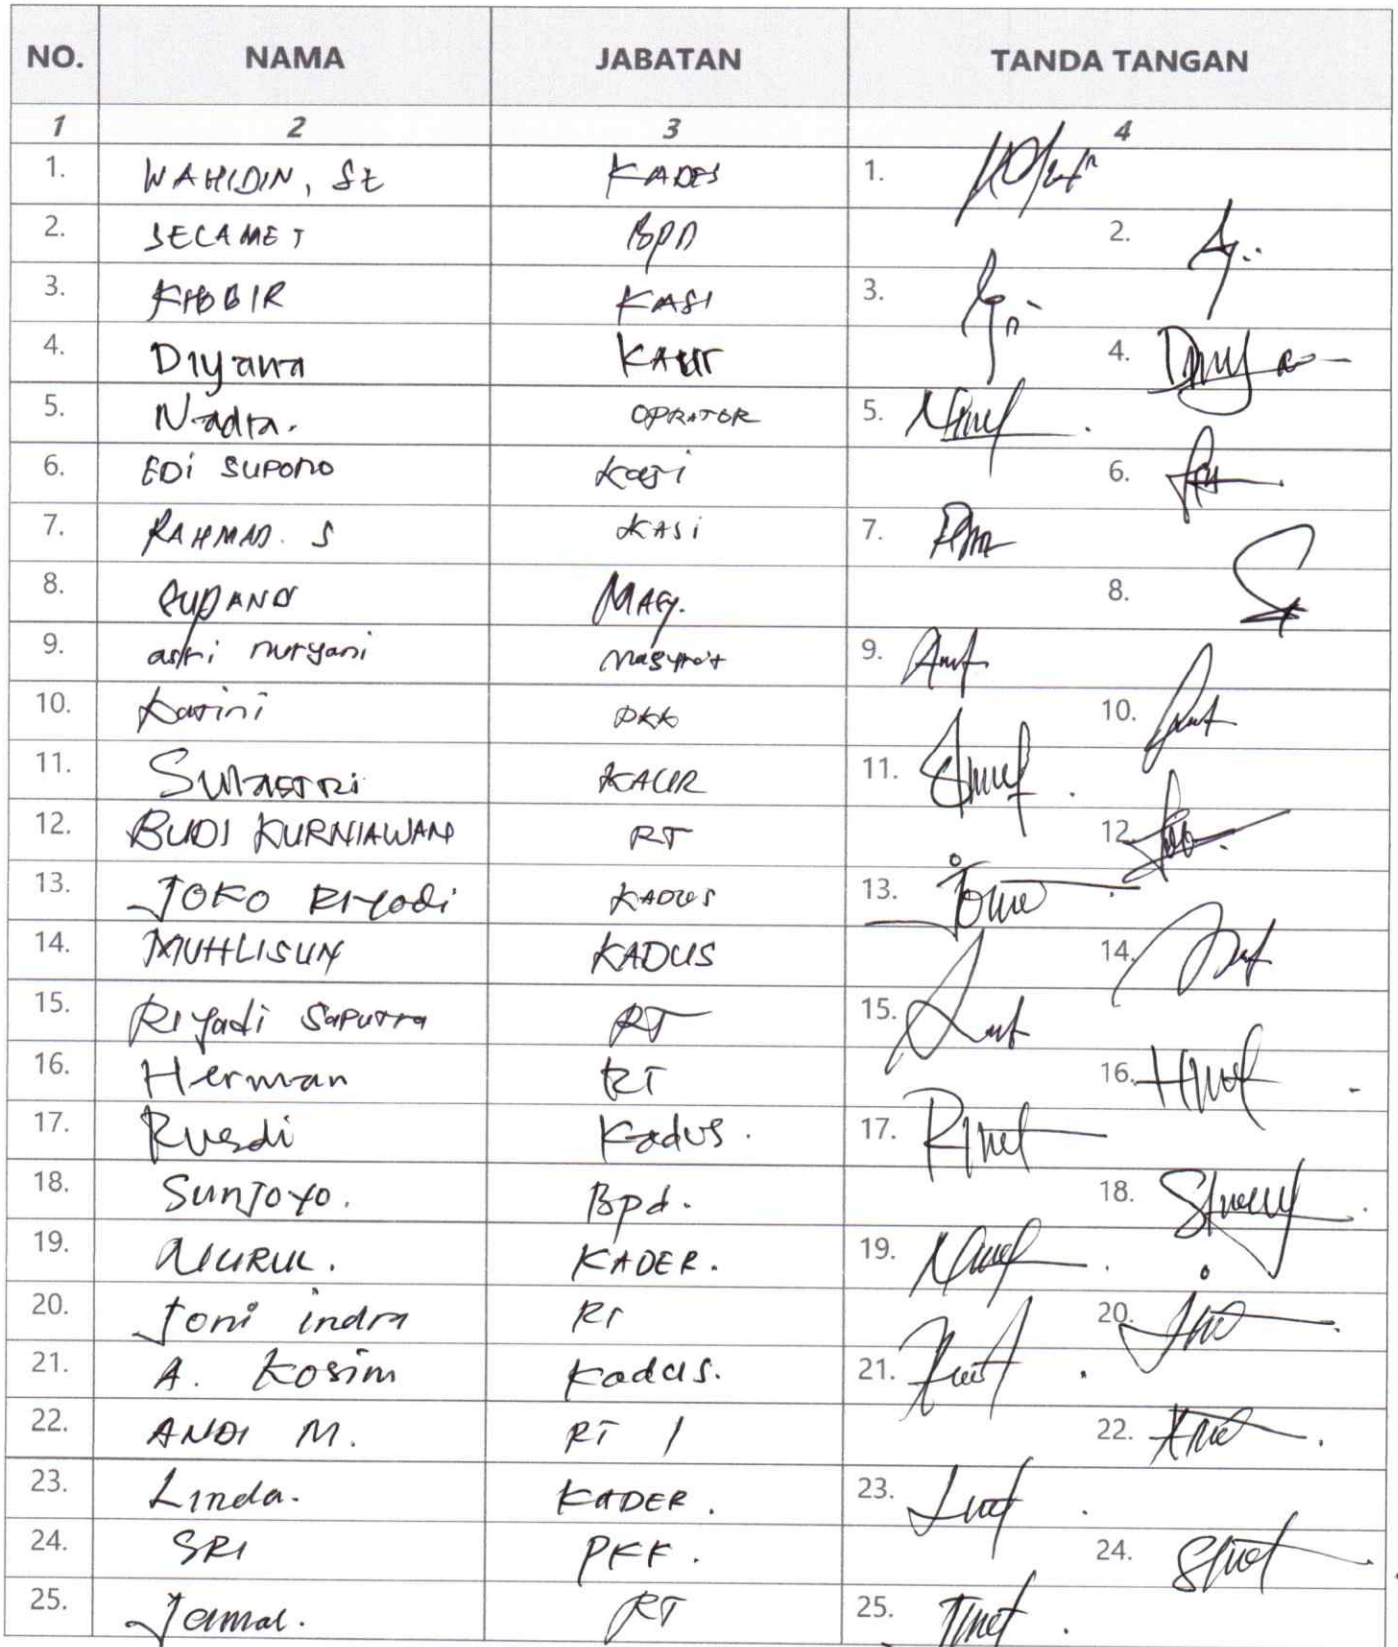 NO. NAMA JABATAN TANDA TANGAN
1 2 3 4
1. WAHIDIN, SE KADES 1.
2. SECAMET BPD 2.
3. KHOBIR KASI 3.
4. Diyana KAUR 4.
5. Nadia. OPRATOR 5.
6. EDi SUPONO Kasi 6.
7. RAHMAD. S KASi 7.
8. SUPANO 8.
9. nuryani 9.
10. Karini PKK 10.
11. Sulastri KAUR 11.
12. BUDI KURNIAWAN RT 12.
13. JOKO RIyadi KADUS 13.
14. MUHLISUN KADUS 14.
15. RIyadi Saputra RT 15.
16. Herman RT 16.
17. Rusdi Kadus. 17.
18. SunJoyo. Bpd. 18.
19. NURUL. KADER. 19.
20. Joni indra RT 20.
21. A. Kosim Kadus. 21.
22. ANDI M. RT 1 22.
23. Linda. KADER. 23.
24. SRI PKK. 24.
25. Jamal. RT 25.